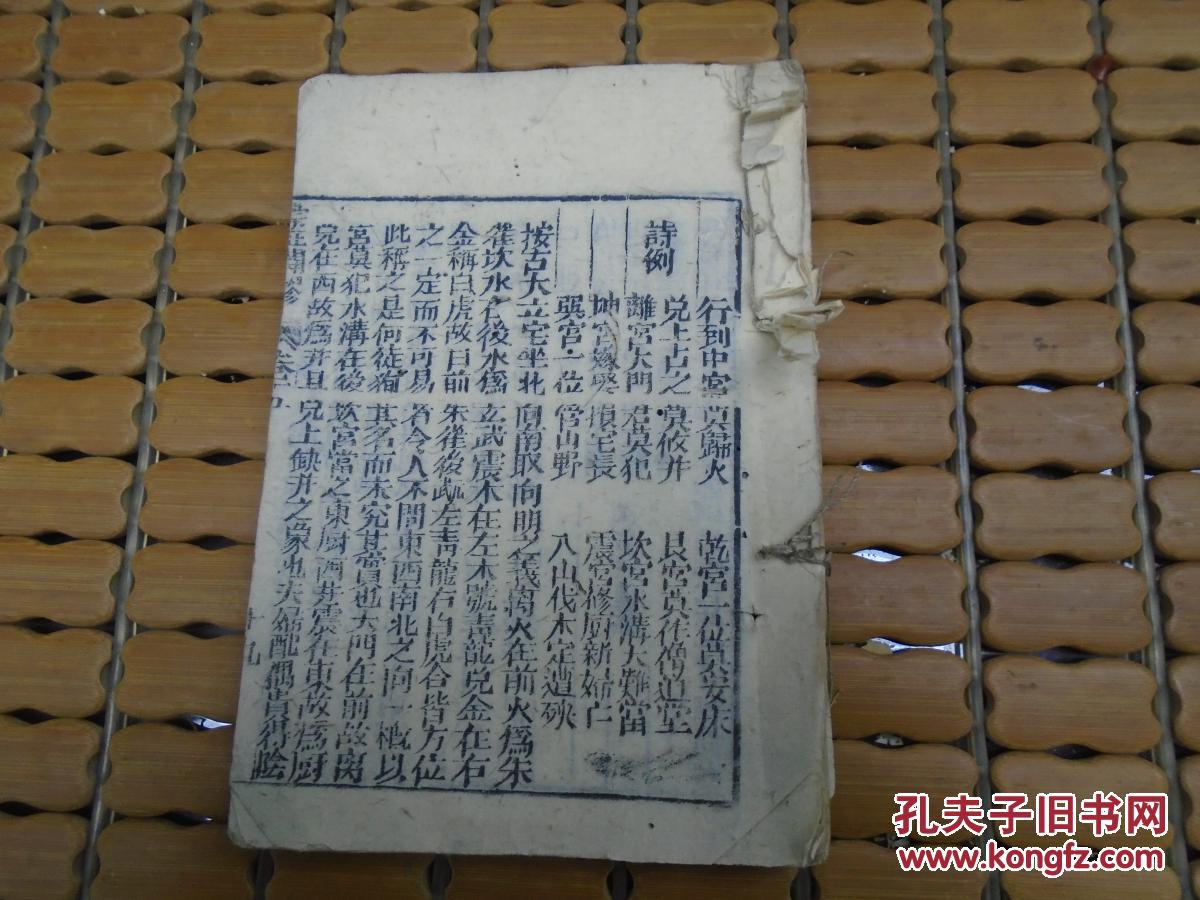 行到中宮莫歸火 乾宮一位莫安床
兌上占之莫攸井 艮宮莫作僧道堂
詩例
離宮大門君莫犯 坎宮水溝大難當
坤宮嫁娶損宅長 震宮修厨新婦亡
巽宮一位管山野 八山伐木定遭殃
按古人立宅坐北向南取向明之義离火在前火爲朱
雀坎水在後水爲玄武震木在左木號青龍兌金在右
金稱白虎故曰前朱雀後武左青龍右白虎合皆方位
之一定而不可易者今人不問東西南北之向一概以
此稱之是何徒狥其名而未究其當眞也大門在前故离
宮莫犯水溝在後坎宮當之東厨西井震在東故爲厨
兌在西故爲井且兌上缺井之象也夫婦配耦貴得陰
孔夫子旧书网
www.kongfz.com